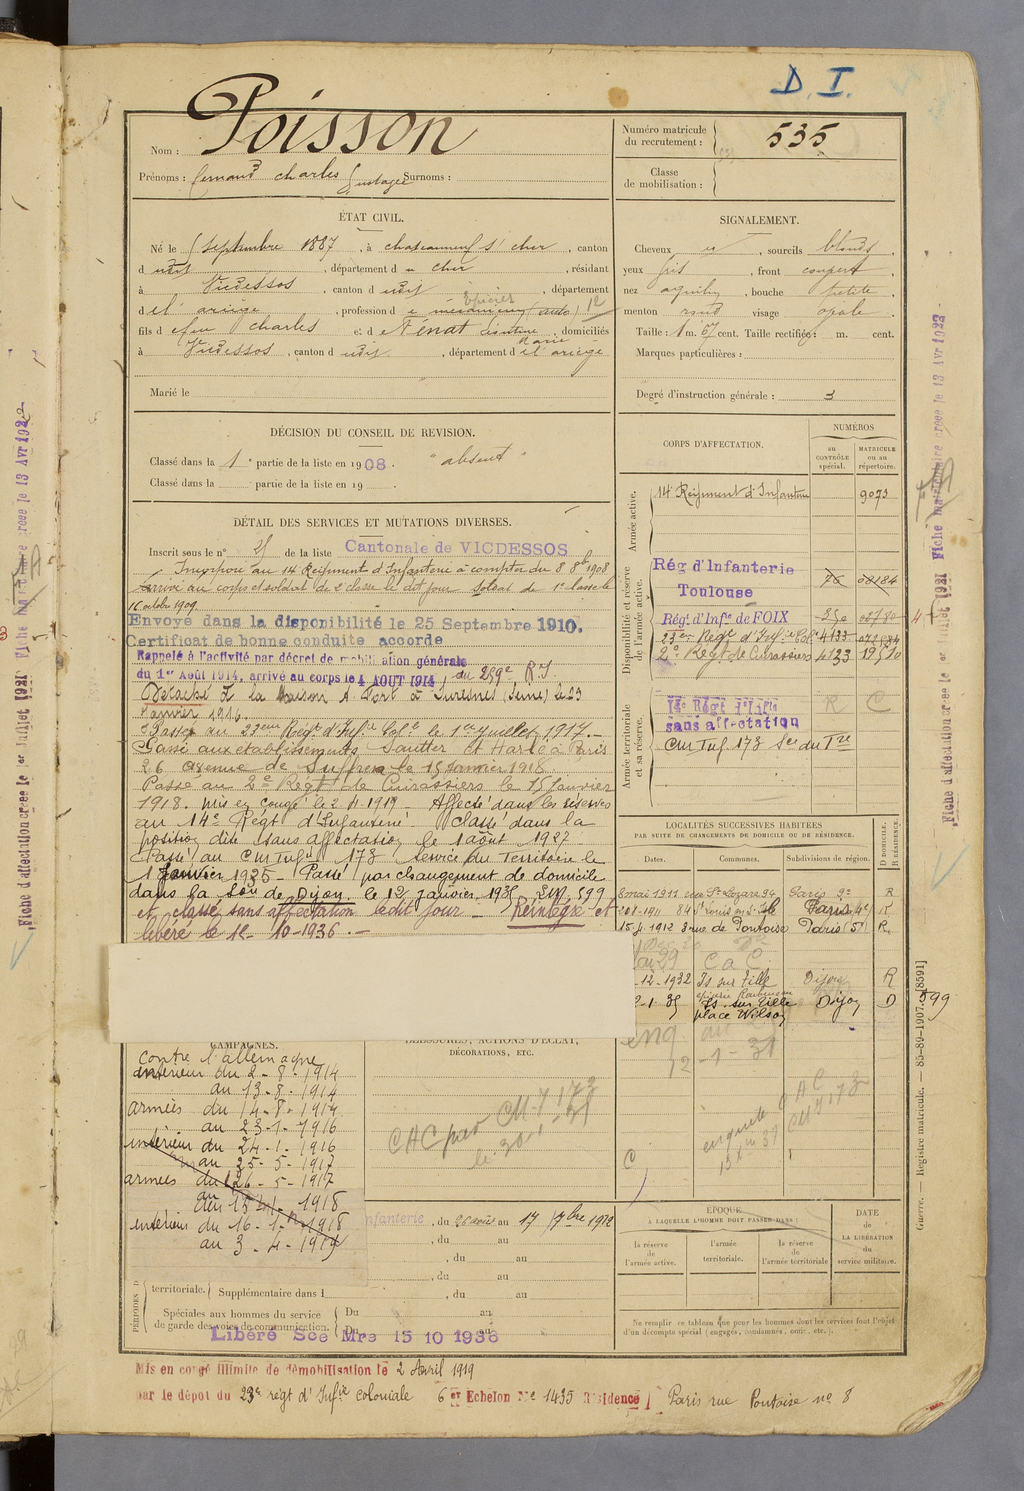 D. I.
Nom : Poisson
Prénoms : fernand charles Gustave Surnoms :
Numéro matricule du recrutement : 535
Classe de mobilisation :
ÉTAT CIVIL.
Né le septembre 1887, à chateauneuf s' cher, canton
d udit, département d u cher, résidant
à Vicdessos, canton d udit, département
d e l' ariège, profession d e mécanicien (auto) épicier 12
fils d e feu charles et d e Ténat Marie, domiciliés
à Vicdessos, canton d udit, département d e l'ariège
Marié le
SIGNALEMENT.
Cheveux et, sourcils blonds,
yeux gris, front couvert,
nez aquilin, bouche petite,
menton rond visage ovale.
Taille : 1 m. 67 cent. Taille rectifiée : m. cent.
Marques particulières :
Degré d'instruction générale : 3
DÉCISION DU CONSEIL DE REVISION.
Classé dans la 1e partie de la liste en 1908. "absent"
Classé dans la partie de la liste en 19 .
DÉTAIL DES SERVICES ET MUTATIONS DIVERSES.
Inscrit sous le n° 25 de la liste Cantonale de VICDESSOS
Incorporé au 14 Régiment d'Infanterie à compter du 8 8bre 1908
Arrivé au corps et soldat de 2e classe le dit jour soldat de 1e classe le
16 octobre 1909.
Envoyé dans la disponibilité le 25 Septembre 1910.
Certificat de bonne conduite accordé
Rappelé à l'activité par décret de mobilisation générale
du 1er Août 1914, arrivé au corps le 4 AOUT 1914, du 259e R.I.
Détaché à la maison A Port à Suresnes (Seine) le 23
Janvier 1916.
Passé au 23eme Régt d'Infie Colle le 1er Juillet 1917.—
Passé aux établissements Sautter et Harlé à Paris
26 avenue de Suffren le 15 Janvier 1918.
Passé au 2e Régt de Cuirassiers le 15 Janvier
1918. mis en congé le 2-4-1919 - Affecté dans les réserves
au 14e Régt d'Infanterie. Classé dans la
position dite sans affectation le 1 août 1927
Passé au CM Inf 173 Service du Territoire le
1 Janvier 1935 - Passé par changement de domicile
dans la Son de Dijon le 12 Janvier 1935 LM 599
et classé sans affectation le dit jour — Réintégré et
libéré le 15-10-1936.—
CORPS D'AFFECTATION.
NUMÉROS
au CONTRÔLE spécial.
MATRICULE ou au répertoire.
Armée active.
14 Régiment d'Infanterie 9073
Disponibilité et réserve de l'armée active.
Rég d'Infanterie Toulouse 08184
Rég. d'Infie de FOIX
23e Régt d'Infie Cole 4133
2e Régt de Cuirassiers 4133 19510
Armée territoriale et sa réserve.
14e Régt d'Infie R C
sans affectation
CM Inf 173 Sce du Tre
LOCALITÉS SUCCESSIVES HABITÉES
PAR SUITE DE CHANGEMENTS DE DOMICILE OU DE RÉSIDENCE.
Dates. Communes. Subdivisions de région. D DOMICILE. R RÉSIDENCE.
8 mai 1911 rue St Lazare 94 Paris 9e R
84 St Louis en l'Isle Paris (4e) R
15-4-1912 3 rue de Pontoise Paris (5e) R.
C a C
-12-1932 Is sur Tille Dijon R
2-1-35 Is sur Tille Dijon D 599
place Wilson
12-1-31
CAMPAGNES.
Contre l'allemagne
intérieur du 2-8-1914
au 13-8-1914
armées du 14-8-1914
au 23-1-1916
intérieur du 24-1-1916
au 25-5-1917
armées du 26-5-1917
au 15-1-1918
intérieur du 16-1-1918
au 3-4-1919
BLESSURES, ACTIONS D'ÉCLAT,
DÉCORATIONS, ETC.
CAC par CM 173
le 30-1-31
enquete CAC
CM 173
C
nfanterie, du 26 août au 17 7bre 1912
, du au
, du au
, du au
territoriale. Supplémentaire dans l , du au
Spéciales aux hommes du service
de garde des voies de communication. Du au
Du au
Libéré Sce Mre 15 10 1936
ÉPOQUE
À LAQUELLE L'HOMME DOIT PASSER DANS :
la réserve de l'armée active.
l'armée territoriale.
la réserve de l'armée territoriale
DATE de LA LIBÉRATION du service militaire.
Ne remplir ce tableau que pour les hommes dont les services font l'objet
d'un décompte spécial (engagés, condamnés, omis, etc.).
Mis en congé illimité de démobilisation le 2 Avril 1919
par le dépôt du 23e régt d'Infie coloniale 6 er Echelon No 1435 Résidence Paris rue Pontoise no 8
Guerre. — Registre matricule. — 85-89-1907. [8591]
Fiche d'affectation créée le 1er Juillet 1921 Fiche matriculaire créée le 13 Avr 1922
Fiche d'affectation créée le 1er Juillet 1921 Fiche matriculaire créée le 13 Avr 1922